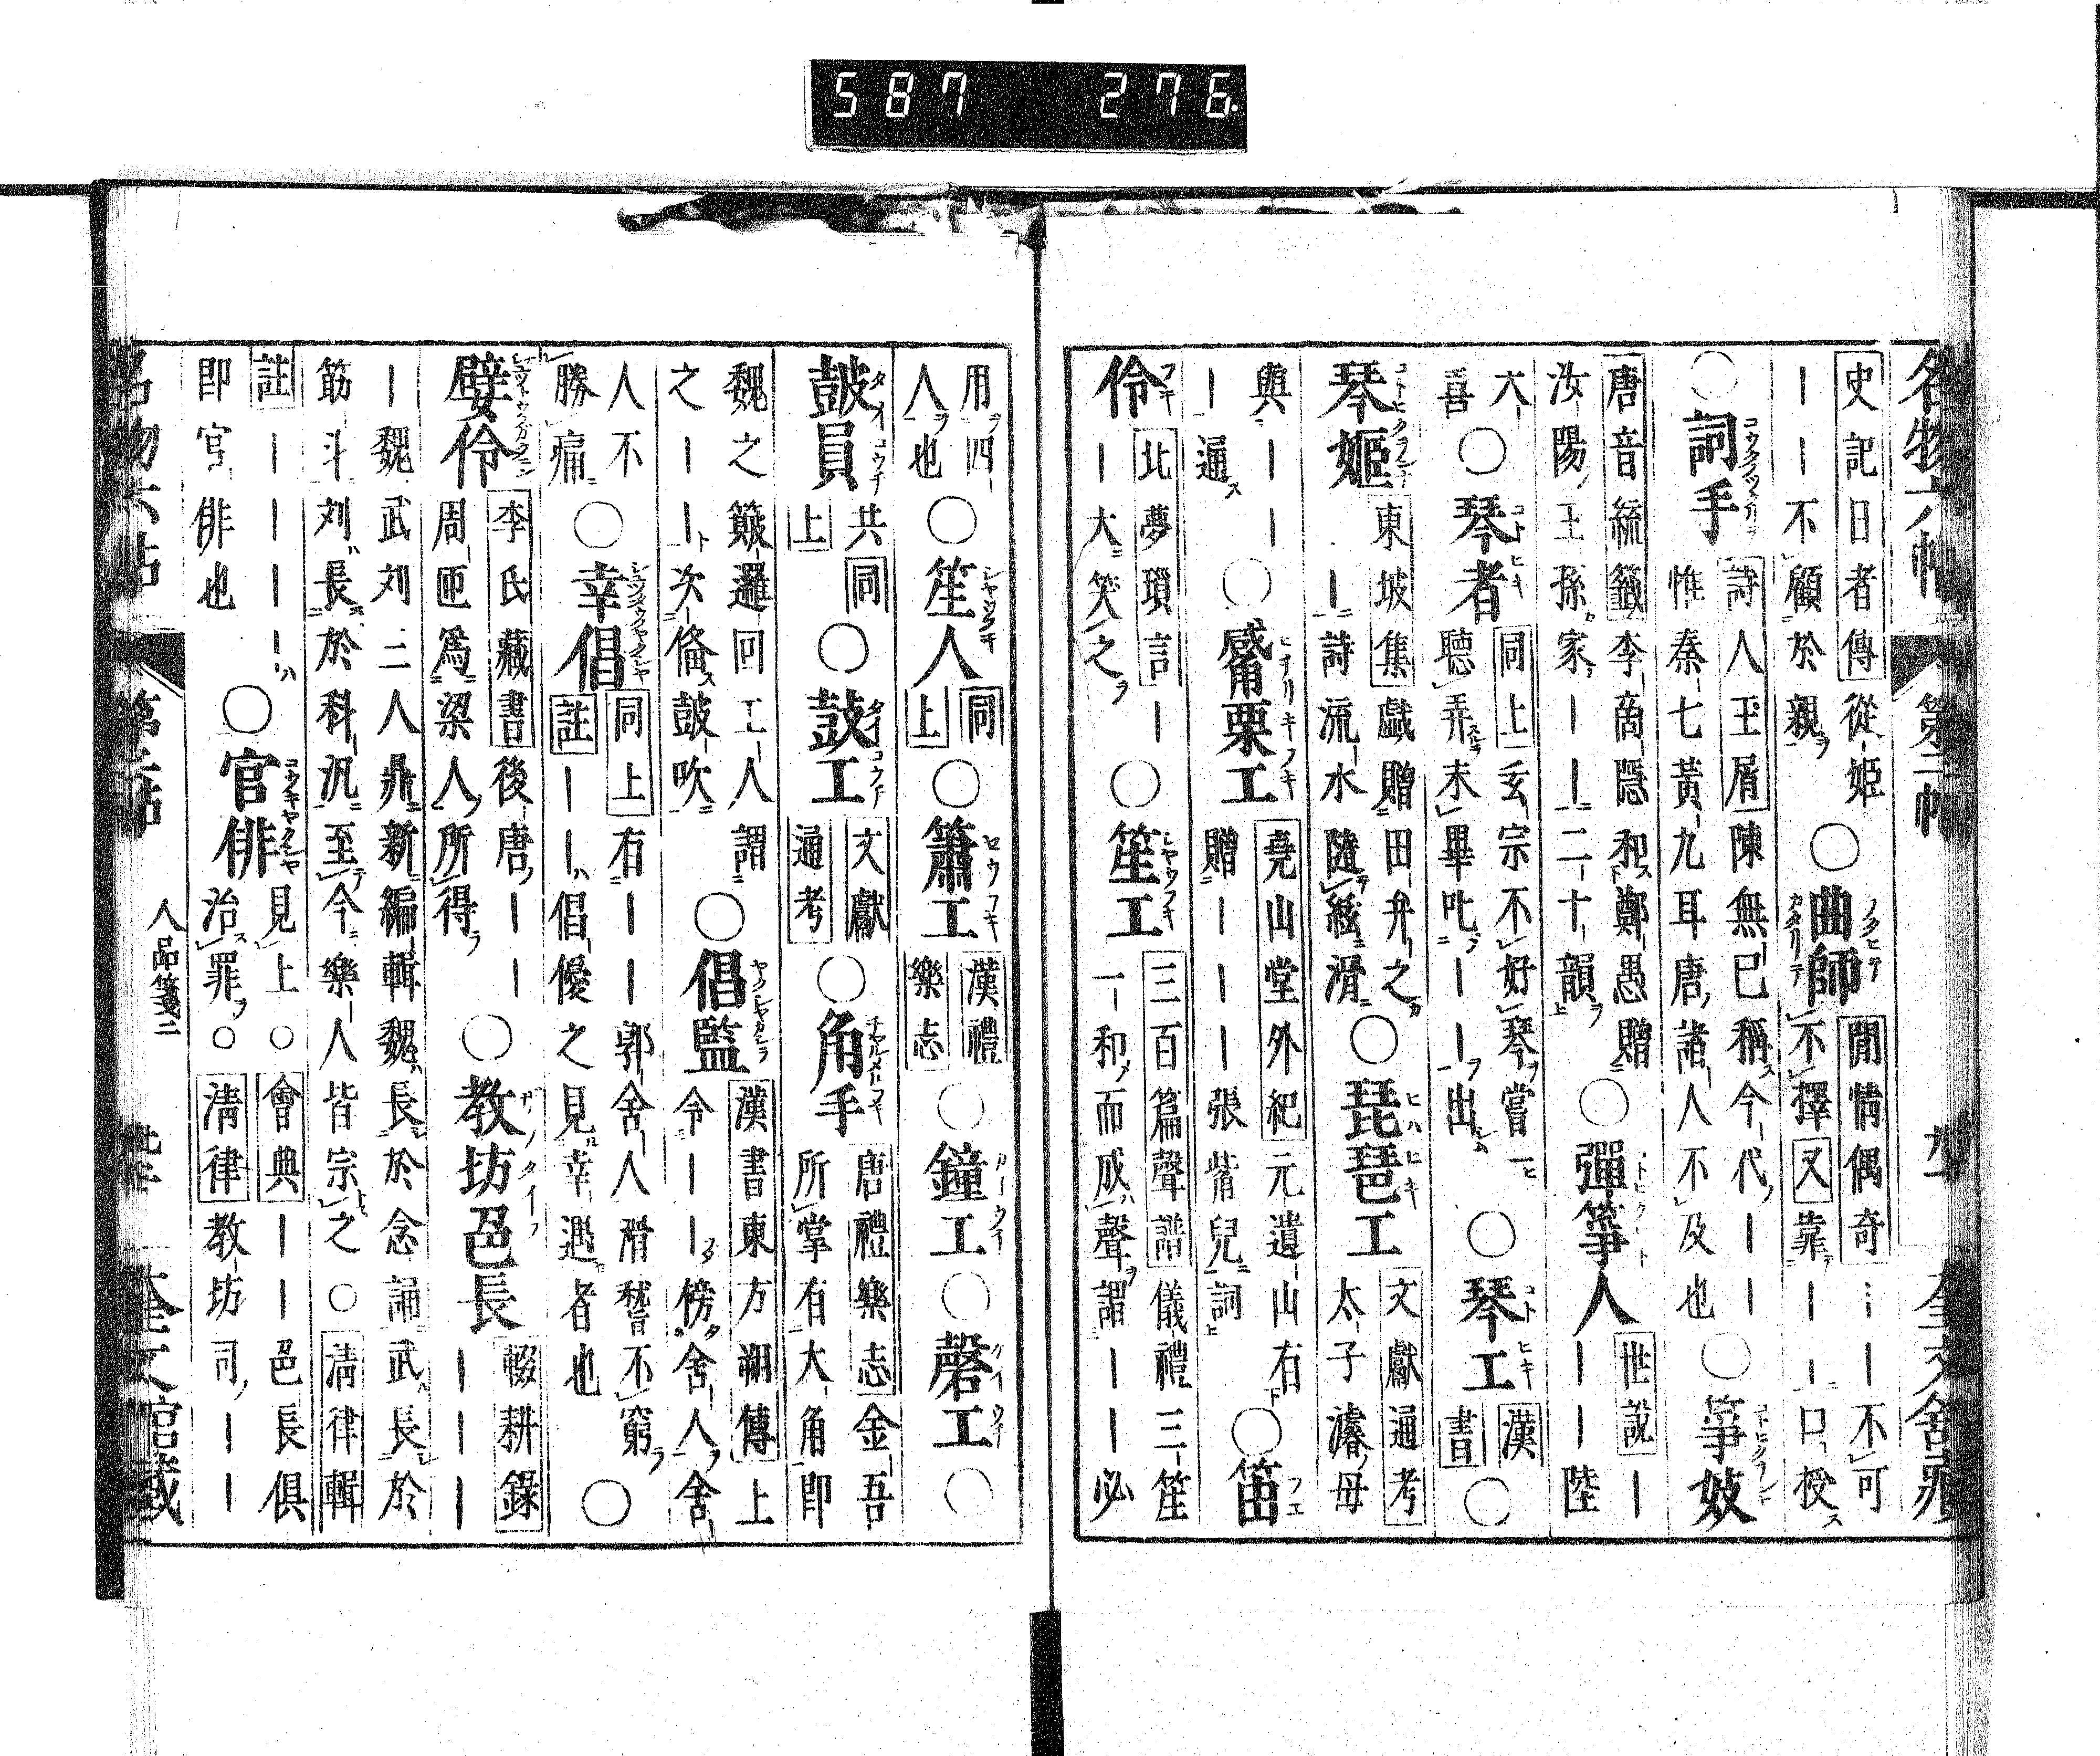 587 276.
名物六帖 第二帖 奎文舘藏
史記日者傳從姫○曲師閒情偶奇⋮｜不可
｜｜不顧於親 不擇又靠｜｜口授
○詞手詩人玉屑陳無已稱今代｜｜○箏妓
惟秦七黃九耳唐諸人不及也
唐音統籤李商隱和鄭愚贈○彈箏人世說｜
汝陽王孫家｜｜二十韻 ｜｜陸
大○琴者同上玄宗不好琴嘗一○琴工漢○
喜 聽弄未畢叱｜｜出 書
琴姬東坡集戯贈田弁之○琵琶工文獻通考
｜詩流水隨絃滑 太子濬母
與｜｜○觱栗工堯山堂外紀元遺山右○笛
｜遍 贈｜｜｜張觜兒詞
伶北夢瑣言｜○笙工三百篇聲譜儀禮三笙
｜大笑之 一和而成聲謂｜｜必
用四○笙人同○簫工漢禮○鐘工○磬工○
人也 上 樂志
鼓員共同○鼓工文獻○角手唐禮樂志金吾
上 通考 所掌有大角即
魏之簸邏回工人謂○倡監漢書東方朔傳上
之｜｜次偹鼓吹 令｜｜榜舍人舍
人不○幸倡同上右｜｜郭舍人滑稽不窮○
勝痛 註｜｜倡優之見幸遇者也
嬖伶李氏藏書後唐｜｜○教坊邑長輟耕錄
周匝爲梁人所得 ｜｜｜
｜魏武刘二人鼎新編輯魏長於念誦武長於
筋斗刘長於科汎至今樂人皆宗之○淸律輯
註｜｜｜｜○官俳見上○會典｜｜邑長俱
即官俳也 治罪○淸律教坊司｜｜
名物六帖 第二帖 人品箋二 奎文舘藏